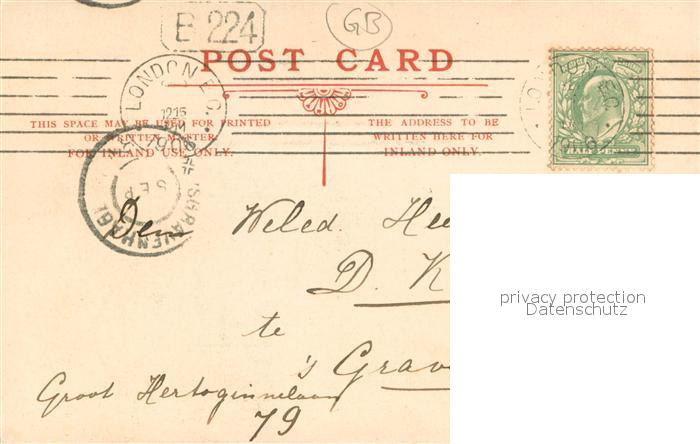 B 224
GB
POST CARD
LONDON E.C.
1215
THIS SPACE MAY BE USED FOR PRINTED
OR WRITTEN MATTER
FOR INLAND USE ONLY.
THE ADDRESS TO BE
WRITTEN HERE FOR
INLAND ONLY.
'SGRAVENHAGE
SEP
Den Weled. Hee
D. K
te
's Grave
Groot Hertoginnelaan
79
privacy protection
Datenschutz